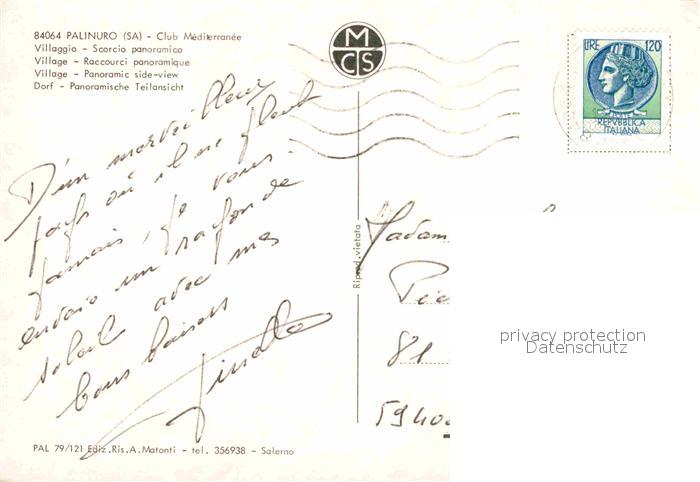 84064 PALINURO (SA) - Club Méditerranée
Villaggio - Scorcio panoramico
Village - Raccourci panoramique
Village - Panoramic side-view
Dorf - Panoramische Teilansicht
MCS
LIRE 120
POSTE
REPVBBLICA
ITALIANA
D'un merveilleux
pays où il ne pleut
jamais, je vous
envoie un rayon de
soleil avec mes
bons baisers
Ginette
Riprod. vietata
Madam
Pie
81
59400
privacy protection
Datenschutz
PAL 79/121 Ediz.Ris.A.Matonti - tel. 356938 - Salerno